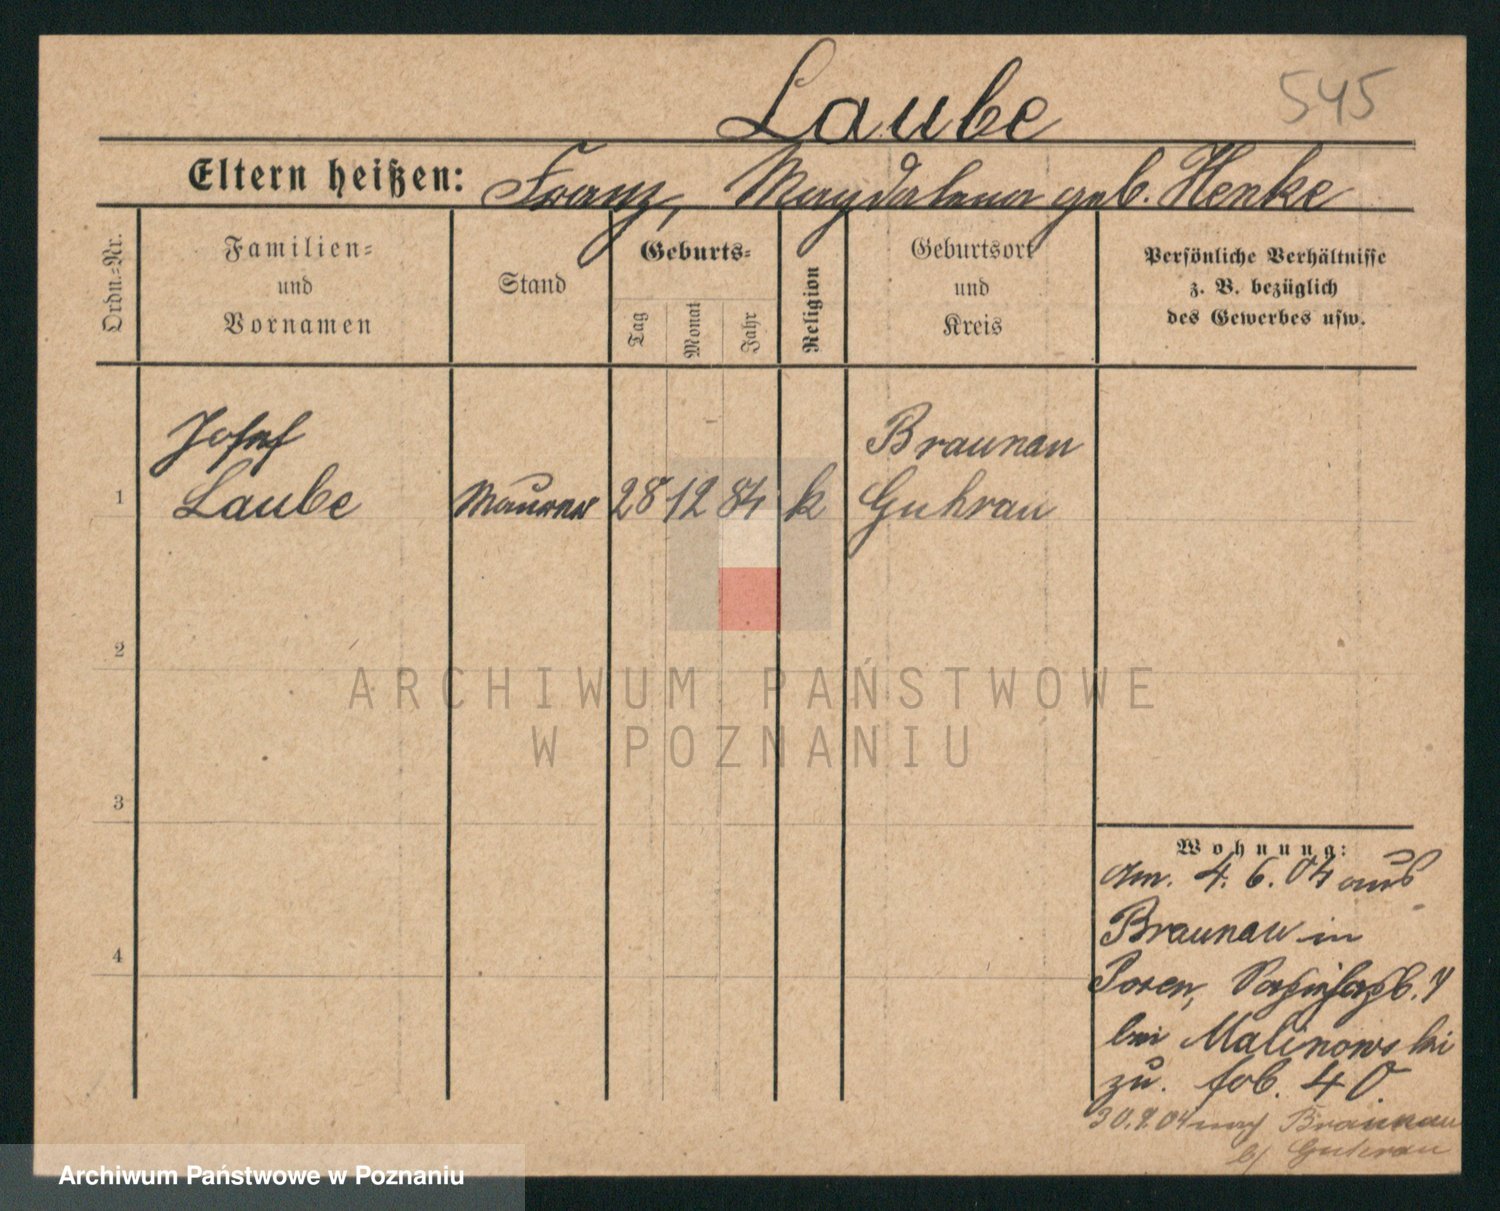 Laube
545
Eltern heißen: Franz, Magdalena geb. Henke
Ordn.=Nr.
Familien=
und
Vornamen
Stand
Geburts=
Tag
Monat
Jahr
Religion
Geburtsort
und
Kreis
Persönliche Verhältnisse
z. B. bezüglich
des Gewerbes usw.
Josef
Laube
1
Maurer
28 12 84
k
Braunau
Guhrau
2
3
4
Wohnung:
Am. 4. 6. 04 aus
Braunau in
Posen,
bei Malinowski
zu.
30.9.04 nach Braunau
b/ Guhrau
ARCHIWUM PAŃSTWOWE
W POZNANIU
Archiwum Państwowe w Poznaniu